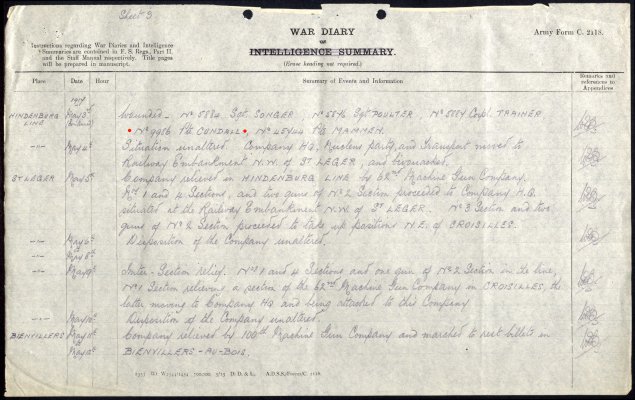 Sheet 3
WAR DIARY
or
INTELLIGENCE SUMMARY.
(Erase heading not required.)
Army Form C. 2118.
Instructions regarding War Diaries and Intelligence
Summaries are contained in F. S. Regs., Part II.
and the Staff Manual respectively. Title pages
will be prepared in manuscript.
Place Date Hour Summary of Events and Information Remarks and references to Appendices
1917
HINDENBURG LINE May 3rd wounded - No 5884 Sgt SONGER, No 5846 Sgt POULTER, No 5887 Corpl TRAINER
No 9986 Pte CUNDALL, No 45744 Pte MAMMEN.
-"- May 4th Situation unaltered. Company HQ, Nucleus party, and Transport moved to
Railway Embankment N.W. of ST LEGER, and bivouaced.
ST LEGER May 5th Company relieved in HINDENBURG LINE by 62nd Machine Gun Company.
No 1 and 4 Sections, and two guns of No 2 Section proceeded to Company H.Q.
situated at the Railway Embankment N.W. of ST LEGER. No 3 Section and two
guns of No 2 Section proceeded to take up positions N.E. of CROISILLES.
-"- May 6th Disposition of the Company unaltered.
-"- May 8th
-"- May 9th Inter-Section relief. No 1 and 4 Sections and one gun of No 2 Section in the line,
No 1 Section relieving a section of the 62nd Machine Gun Company in CROISILLES, the
latter moving to Company HQ and being attached to this Company.
-"- May 10th Disposition of the Company unaltered.
BIENVILLERS May 11th Company relieved by 100th Machine Gun Company and marched to rest billets in
May 12th BIENVILLERS-AU-BOIS.